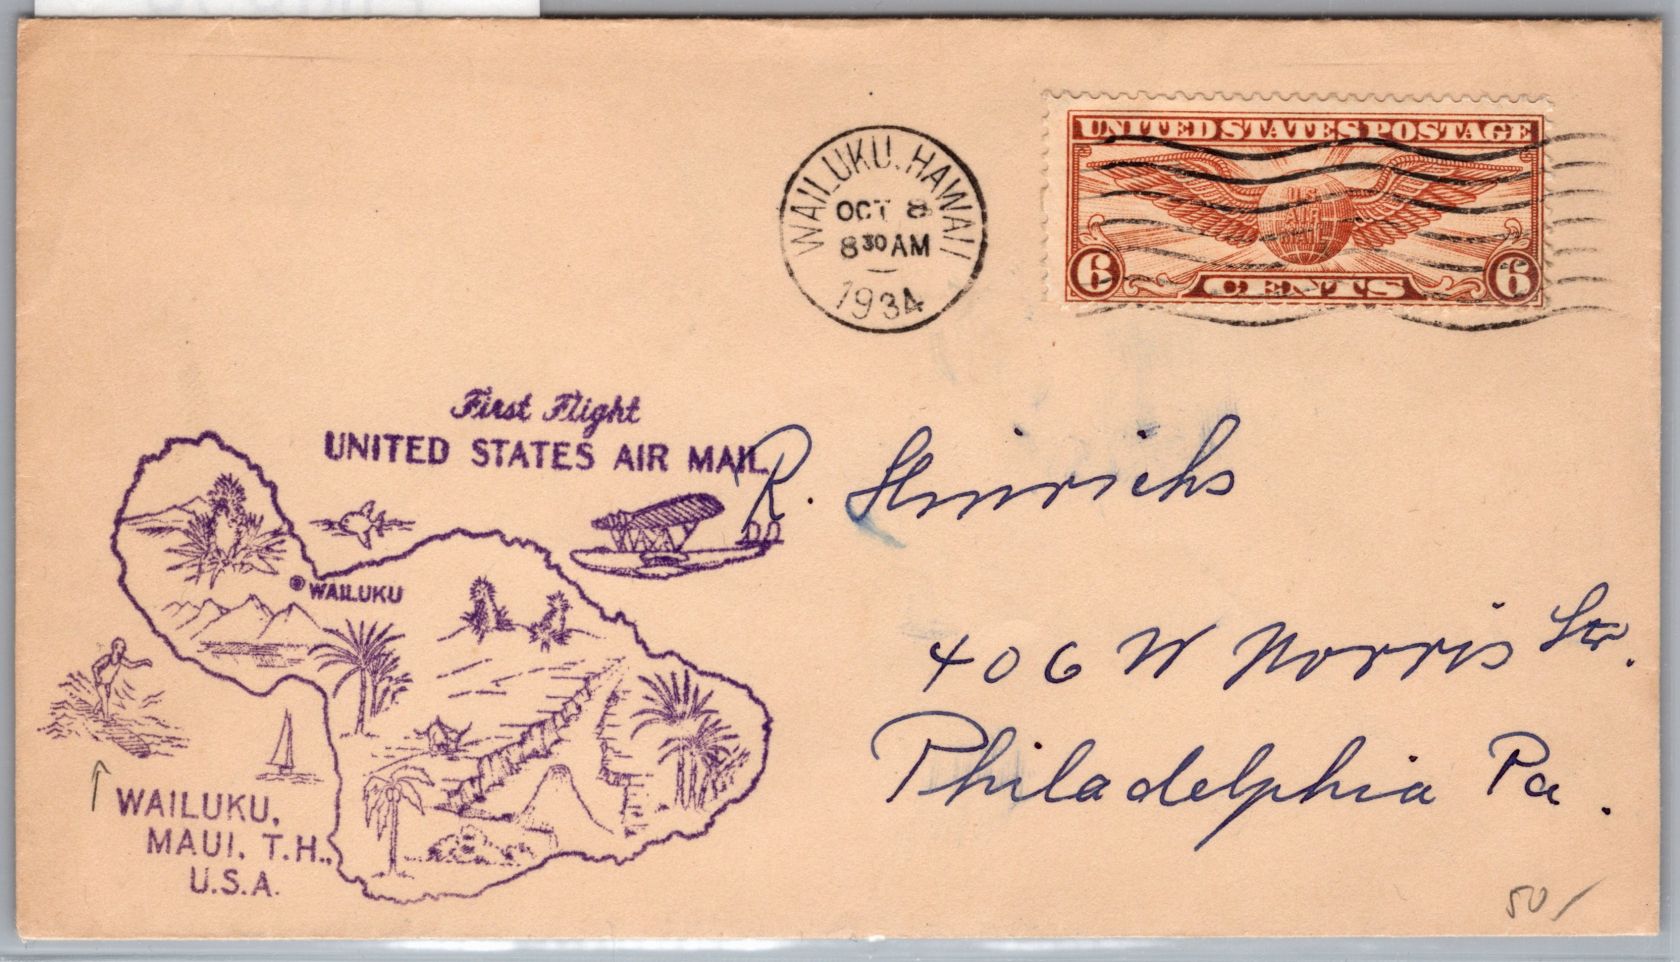 WAILUKU, HAWAII
OCT 8
8 30 AM
1934
UNITED STATES POSTAGE
U.S.
AIR
MAIL
6 CENTS 6
First Flight
UNITED STATES AIR MAIL
WAILUKU
WAILUKU,
MAUI, T.H.,
U.S.A.
R. Hinrichs
406 W Norris Str.
Philadelphia Pa.
50/